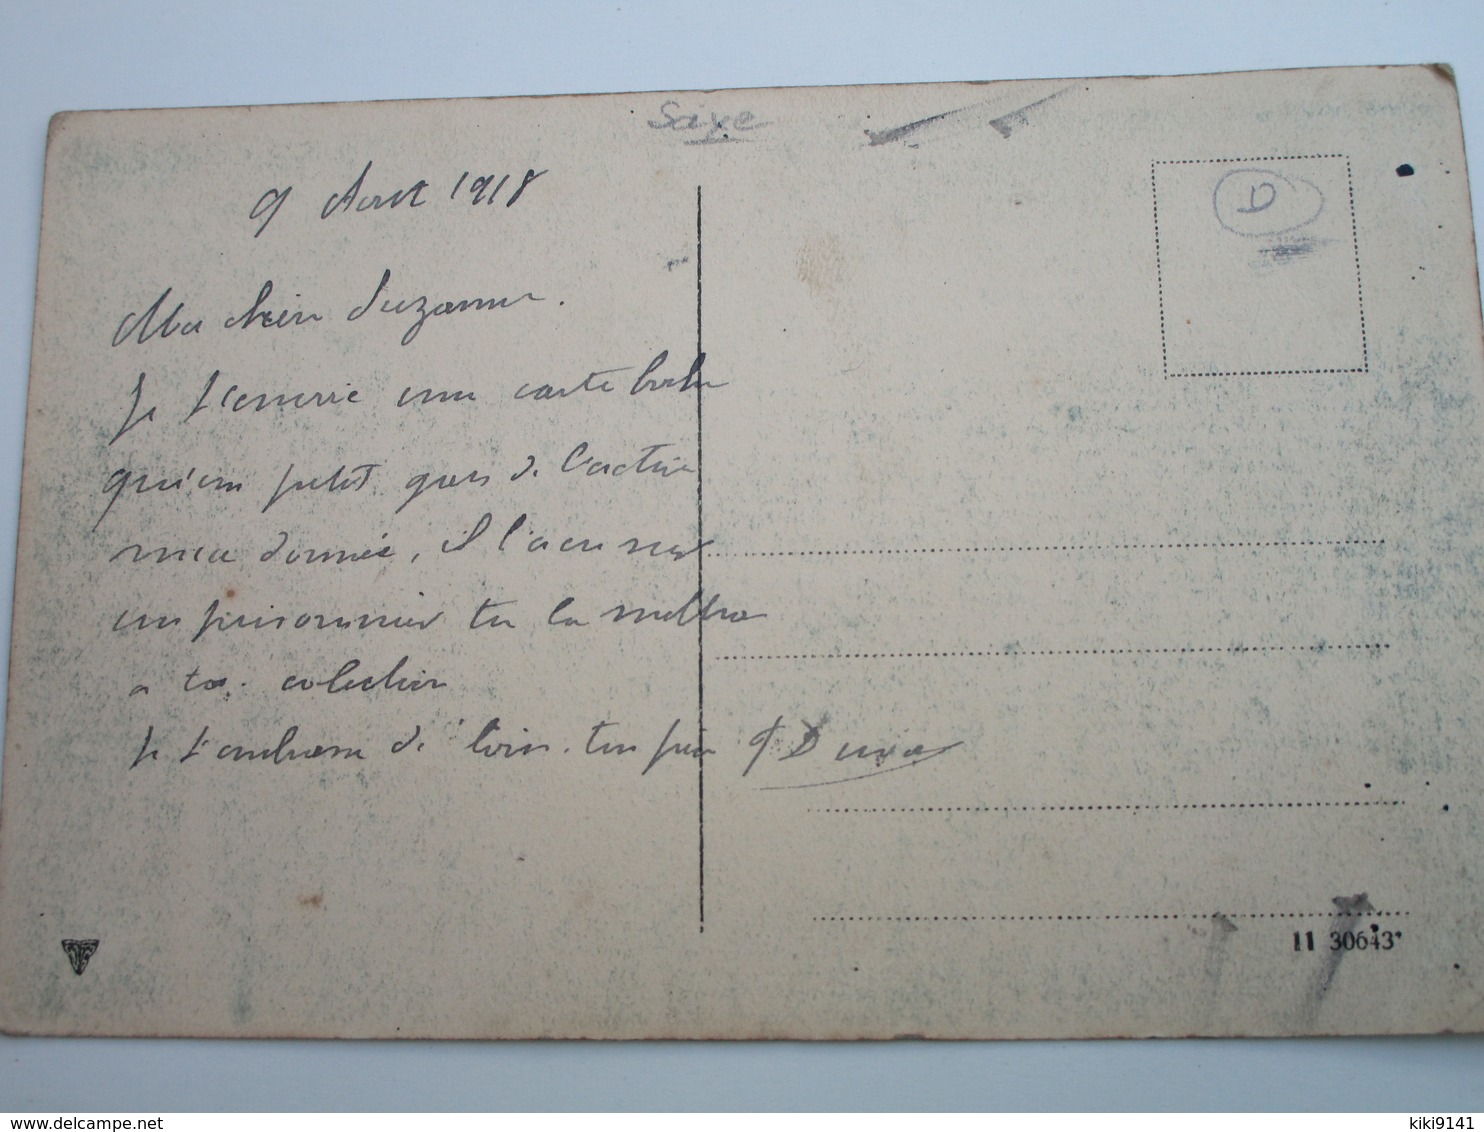 Saxe
9 Aout 1918
D
Ma chere Suzanne.
Je t'envoie une carte boche
qu'un petit gars de l'active
m'a donnée, il l'a eu sur
un prisonnier tu la mettra
a ta colection
Je t'embrasse de loin. ton père
11 30643
delcampe.net
kiki9141